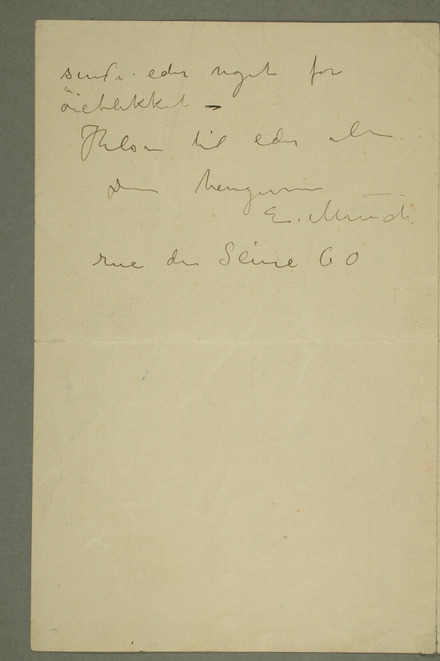 sende eder noget for
øieblikket –
Hilsen til eder alle
Din hengivne
E. Munch
rue de Seine 60